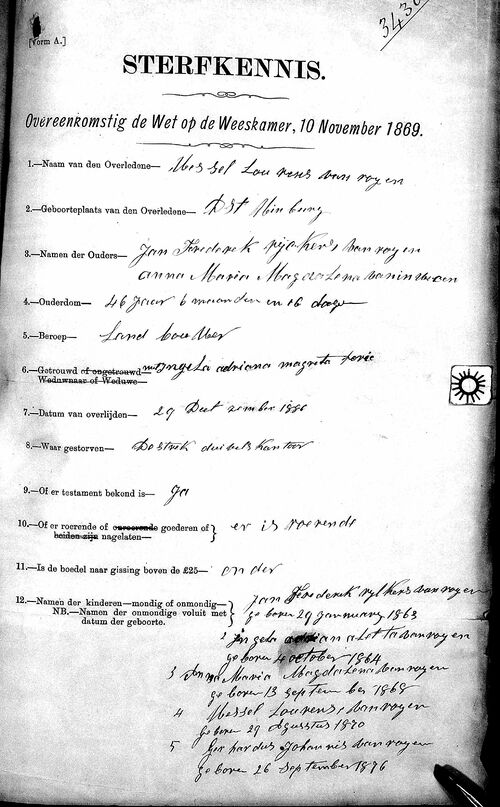 3430
[Vorm A.]
STERFKENNIS.
Overeenkomstig de Wet op de Weeskamer, 10 November 1869.
1.—Naam van den Overledene— Wessel Lourens van royen
2.—Geboorteplaats van den Overledene— Dst
3.—Namen der Ouders— Jan Frederek rijkers van royen
anna Maria MagdaLena
4.—Ouderdom— 46 jaar 6 maanden en 16 dage
5.—Beroep— Land bouwer
6.—Getrouwd of ongetrouwd met Angela adriana magrita
Weduwnaar of Weduwe—
7.—Datum van overlijden— 29 Deet zember 1886
8.—Waar gestorven— Destrek duivels Kantoor
9.—Of er testament bekend is— Ja
10.—Of er roerende of onroerende goederen of } er is roerende
beiden zijn nagelaten—
11.—Is de boedel naar gissing boven de £25— onder
12.—Namen der kinderen—mondig of onmondig— } Jan Frederek rijkers van royen
NB.—Namen der onmondige voluit met geboren 29 januuarij 1863
datum der geboorte.
2 angela adriana aletta van royen
geboren 4 october 1864
3 Anna Maria MagdaLena van royen
geboren 13 september 1868
4 Wessel Lourens, van royen
geboren 29 Agustus 1870
5 Gerhardus Johannis van royen
geboren 26 September 1876